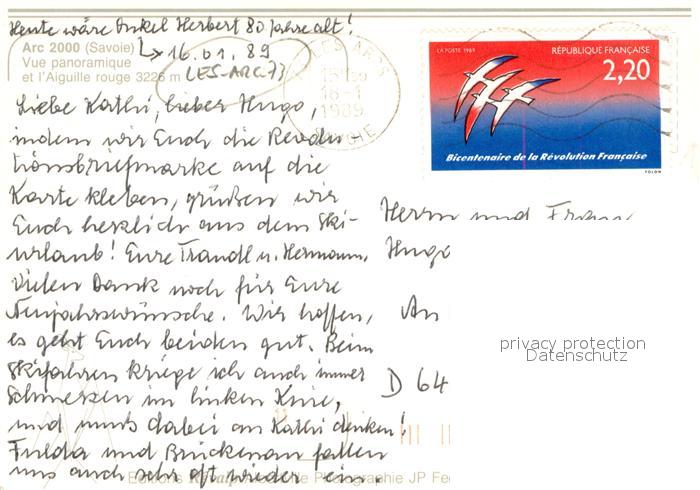 Heute wäre Onkel Herbert 80 Jahre alt!
Arc 2000 (Savoie)
Vue panoramique
et l'Aiguille rouge 3226 m
16.01.89
LES-ARC 73
LES ARCS
15H30
18-1
1989
SAVOIE
LA POSTE 1989
RÉPUBLIQUE FRANÇAISE
2,20
Bicentenaire de la Révolution Française
FOLON
Liebe Kathi, lieber Hugo,
indem wir Euch die Revolu
tionsbriefmarke auf die
Karte kleben, grüßen wir
Euch herzlich aus dem Ski-
urlaub! Eure Traudl u. Hermann.
Vielen Dank noch für Eure
Neujahrswünsche. Wir hoffen,
es geht Euch beiden gut. Beim
Skifahren kriege ich auch immer
Schmerzen im linken Knie,
und muß dabei an Kathi denken!
Fulda und Brückenau fallen
uns auch sehr oft wieder ein.
Herrn und Frau
Hugo
An
D 64
privacy protection
Datenschutz
Editions
Photographie JP